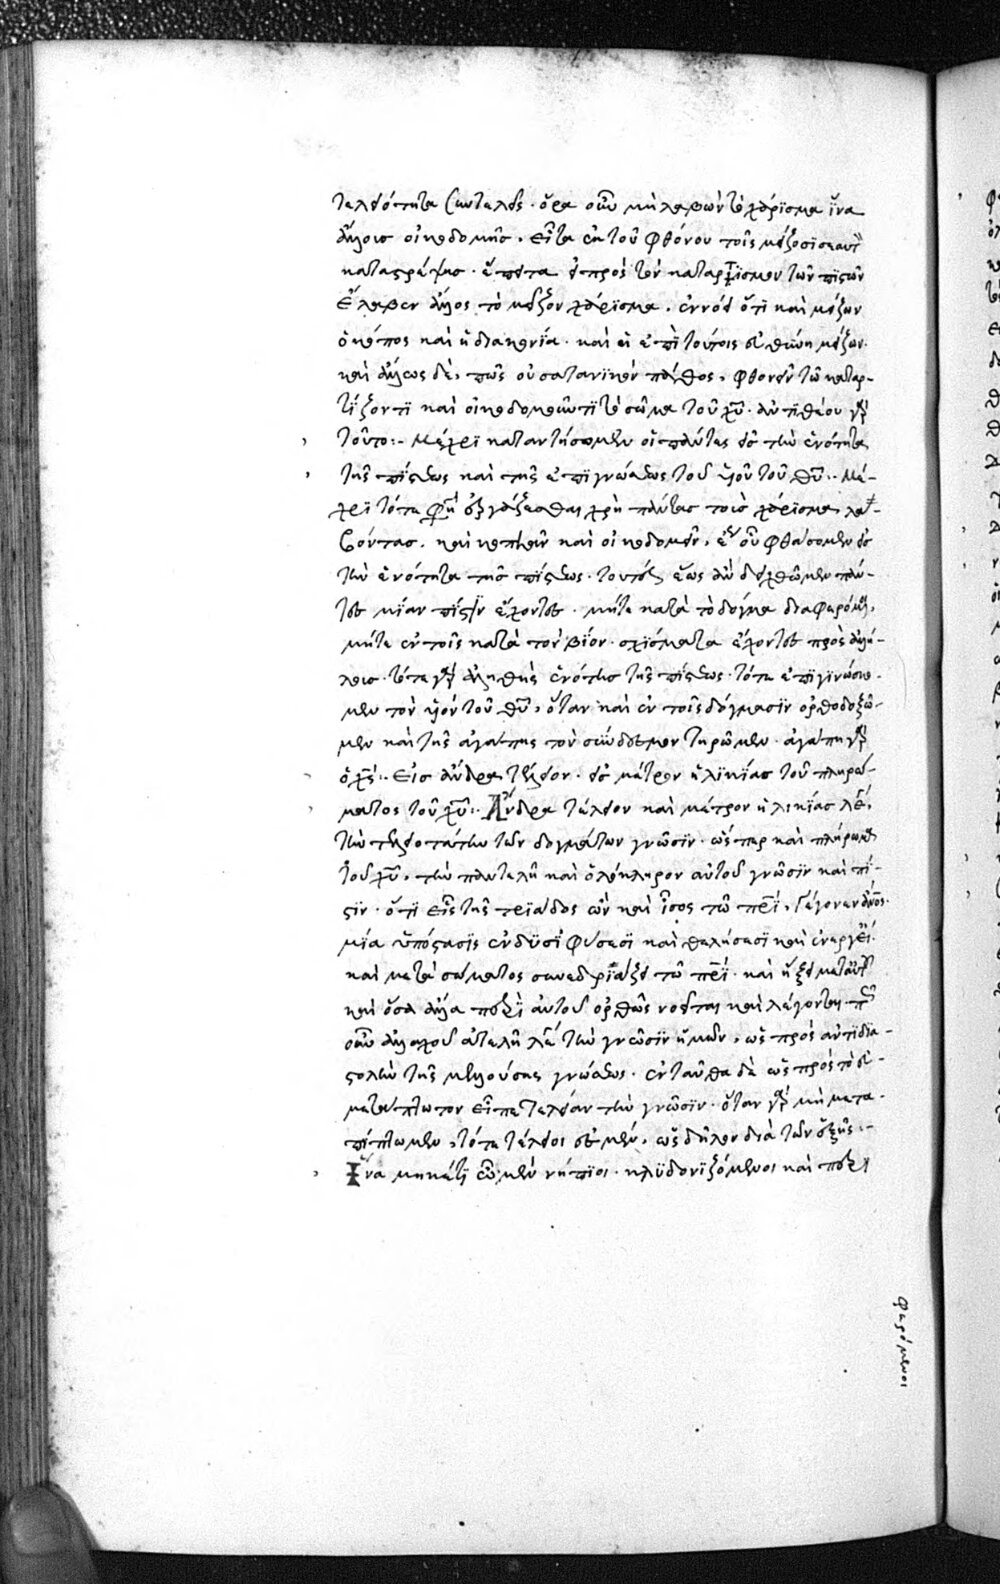 τελειότητα συντελεῖς. ὅρα οὖν μὴ λαβὼν τὸ χάρισμα ἵνα
ἄλλους οἰκοδομῇς, εἶτα ἐκ τοῦ φθόνου τοῖς μείζοσι σεαυτὸν
καταστρέψῃς. ἔπειτα εἰ πρὸς τὸν καταρτισμὸν τῶν πιστῶν
ἔλαβεν ἄλλος τὸ μεῖζον χάρισμα, ἐννόει ὅτι καὶ μείζων
ὁ κόπος καὶ ἡ διακονία. καὶ εἰ ἐπὶ τούτοις μείζων.
καὶ ἄλλως δὲ, πῶς οὐ σατανικὸν πάθος, φθονεῖν τῷ καταρ-
τίζοντι καὶ οἰκοδομοῦντι τὸ σῶμα τοῦ χυ. ἀντιθέου γὰρ
τοῦτο:- Μέχρι καταντήσωμεν οἱ πάντες εἰς τὴν ἑνότητα
τῆς πίστεως καὶ τῆς ἐπιγνώσεως τοῦ υἱοῦ τοῦ θυ:. Μέ-
χρι τότε φησὶ ἐργάζεσθαι χρὴ πάντας τοὺς χάρισμα λα-
βόντας, καὶ κοπιᾶν καὶ οἰκοδομεῖν, ἕως οὗ φθάσωμεν εἰς
τὴν ἑνότητα τῆς πίστεως. τουτέστιν ἕως ἂν δειχθῶμεν πάν-
τες μίαν πίστιν ἔχοντες. μήτε κατὰ τὸ δόγμα διαφερόμενοι,
μήτε ἐν τοῖς κατὰ τὸν βίον. σχίσματα ἔχοντες πρὸς ἀλλή-
λους. τότε γὰρ ἀληθὴς ἑνότης τῆς πίστεως. τότε ἐπιγινώσκο-
μεν τὸν υἱὸν τοῦ θυ, ὅταν καὶ ἐν τοῖς δόγμασιν ὀρθοδοξῶ-
μεν καὶ τῆς ἀγάπης τὸν σύνδεσμον τηρῶμεν. ἀγάπη γὰρ
ὁ χς:. Εἰς ἄνδρα τέλειον. εἰς μέτρον ἡλικίας τοῦ πληρώ-
ματος τοῦ χυ:. Ἄνδρα τέλειον καὶ μέτρον ἡλικίας λέγει,
τὴν τελειοτάτην τῶν δογμάτων γνῶσιν. ὥσπερ καὶ πλήρωμα
τοῦ χυ, τὴν παντελῆ καὶ ὁλόκληρον αὐτοῦ γνῶσιν καὶ πί-
στιν. ὅτι εἷς τῆς τριάδος ὢν καὶ ἴσος τῷ πρι, γέγονεν ἄνος.
μία ὑπόστασις ἐν δυσὶ φύσεσι καὶ θελήσεσι καὶ ἐνεργείαις.
καὶ μετὰ σώματος συνεδριάζει τῷ πρι. καὶ ἥξει μετ' αὐτοῦ
καὶ ὅσα ἄλλα περὶ αὐτοῦ ὀρθῶς νοεῖται καὶ λέγονται. πῶς
οὖν ἀλλαχοῦ ἀτελῆ λέγει τὴν γνῶσιν ἡμῶν, ὡς πρὸς ἀντιδια-
στολὴν τῆς μελλούσης γνώσεως. ἐνταῦθα δὲ ὡς πρὸς τὸ εὐ-
μετάπτωτον εἶπε τελείαν τὴν γνῶσιν. ὅταν γὰρ μὴ μετα-
πίπτωμεν, τότε τέλειοι ἐσμὲν, ὡς δῆλον διὰ τῶν ἑξῆς:-
Ἵνα μηκέτι ὦμεν νήπιοι. κλυδονιζόμενοι καὶ περι
φερόμενοι